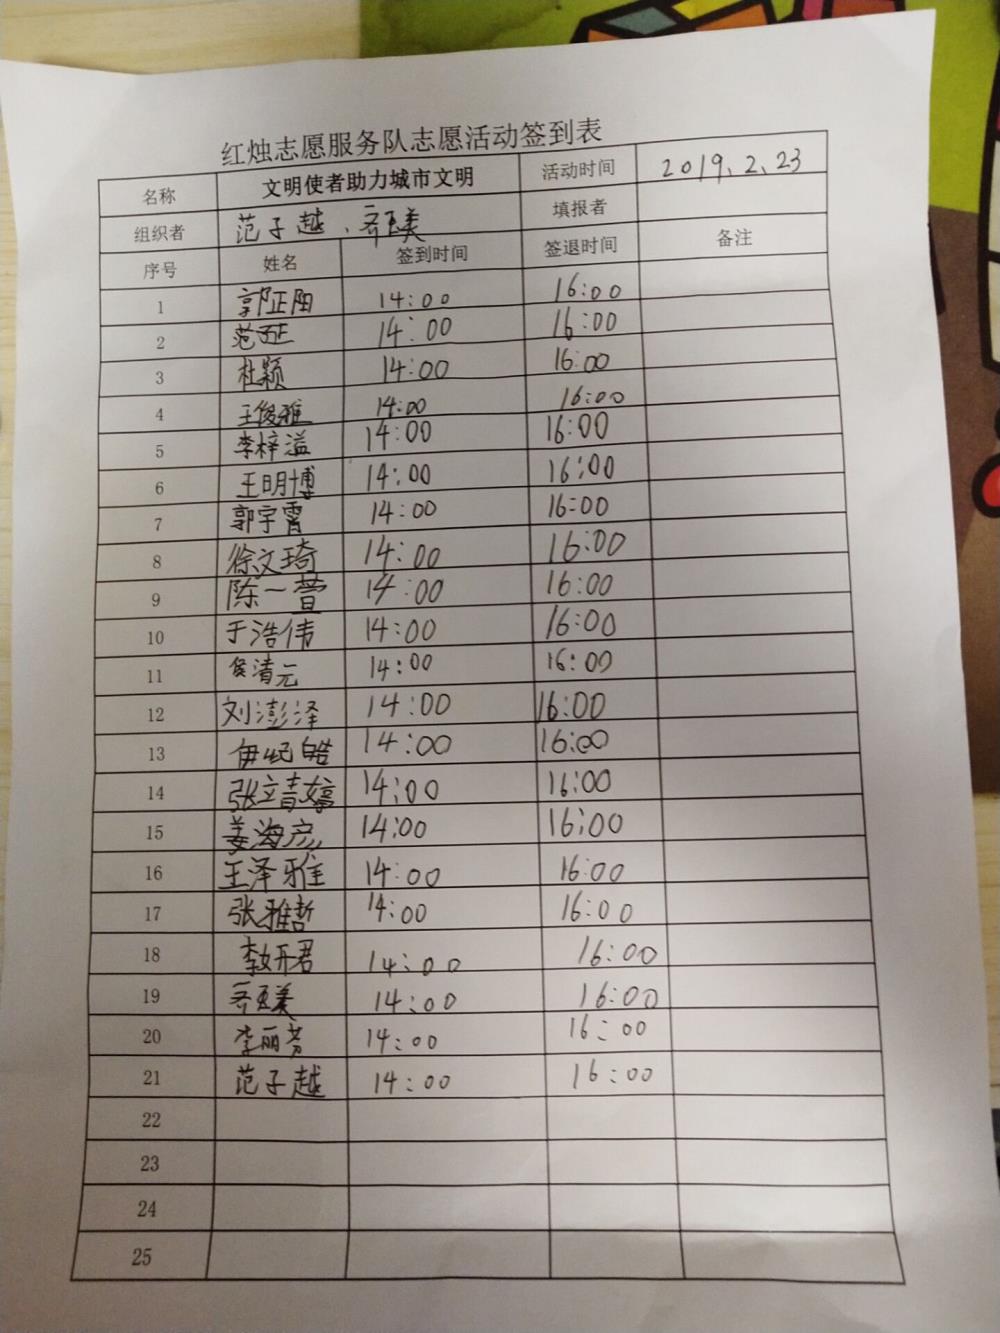 红烛志愿服务队志愿活动签到表
名称 文明使者助力城市文明 活动时间 2019、2、23
组织者 范子越、齐玉美 填报者
序号 姓名 签到时间 签退时间 备注
1 郭正阳 14:00 16:00
2 14:00 16:00
3 杜颖 14:00 16:00
4 王俊雅 14:00 16:00
5 李梓溢 14:00 16:00
6 王明博 14:00 16:00
7 郭宇霄 14:00 16:00
8 徐文琦 14:00 16:00
9 陈一萱 14:00 16:00
10 于浩伟 14:00 16:00
11 侯清元 14:00 16:00
12 刘澎泽 14:00 16:00
13 伊屺皓 14:00 16:00
14 张立青婷 14:00 16:00
15 姜海彦 14:00 16:00
16 王泽雅 14:00 16:00
17 张雅哲 14:00 16:00
18 李妍君 14:00 16:00
19 齐玉美 14:00 16:00
20 李丽芳 14:00 16:00
21 范子越 14:00 16:00
22
23
24
25